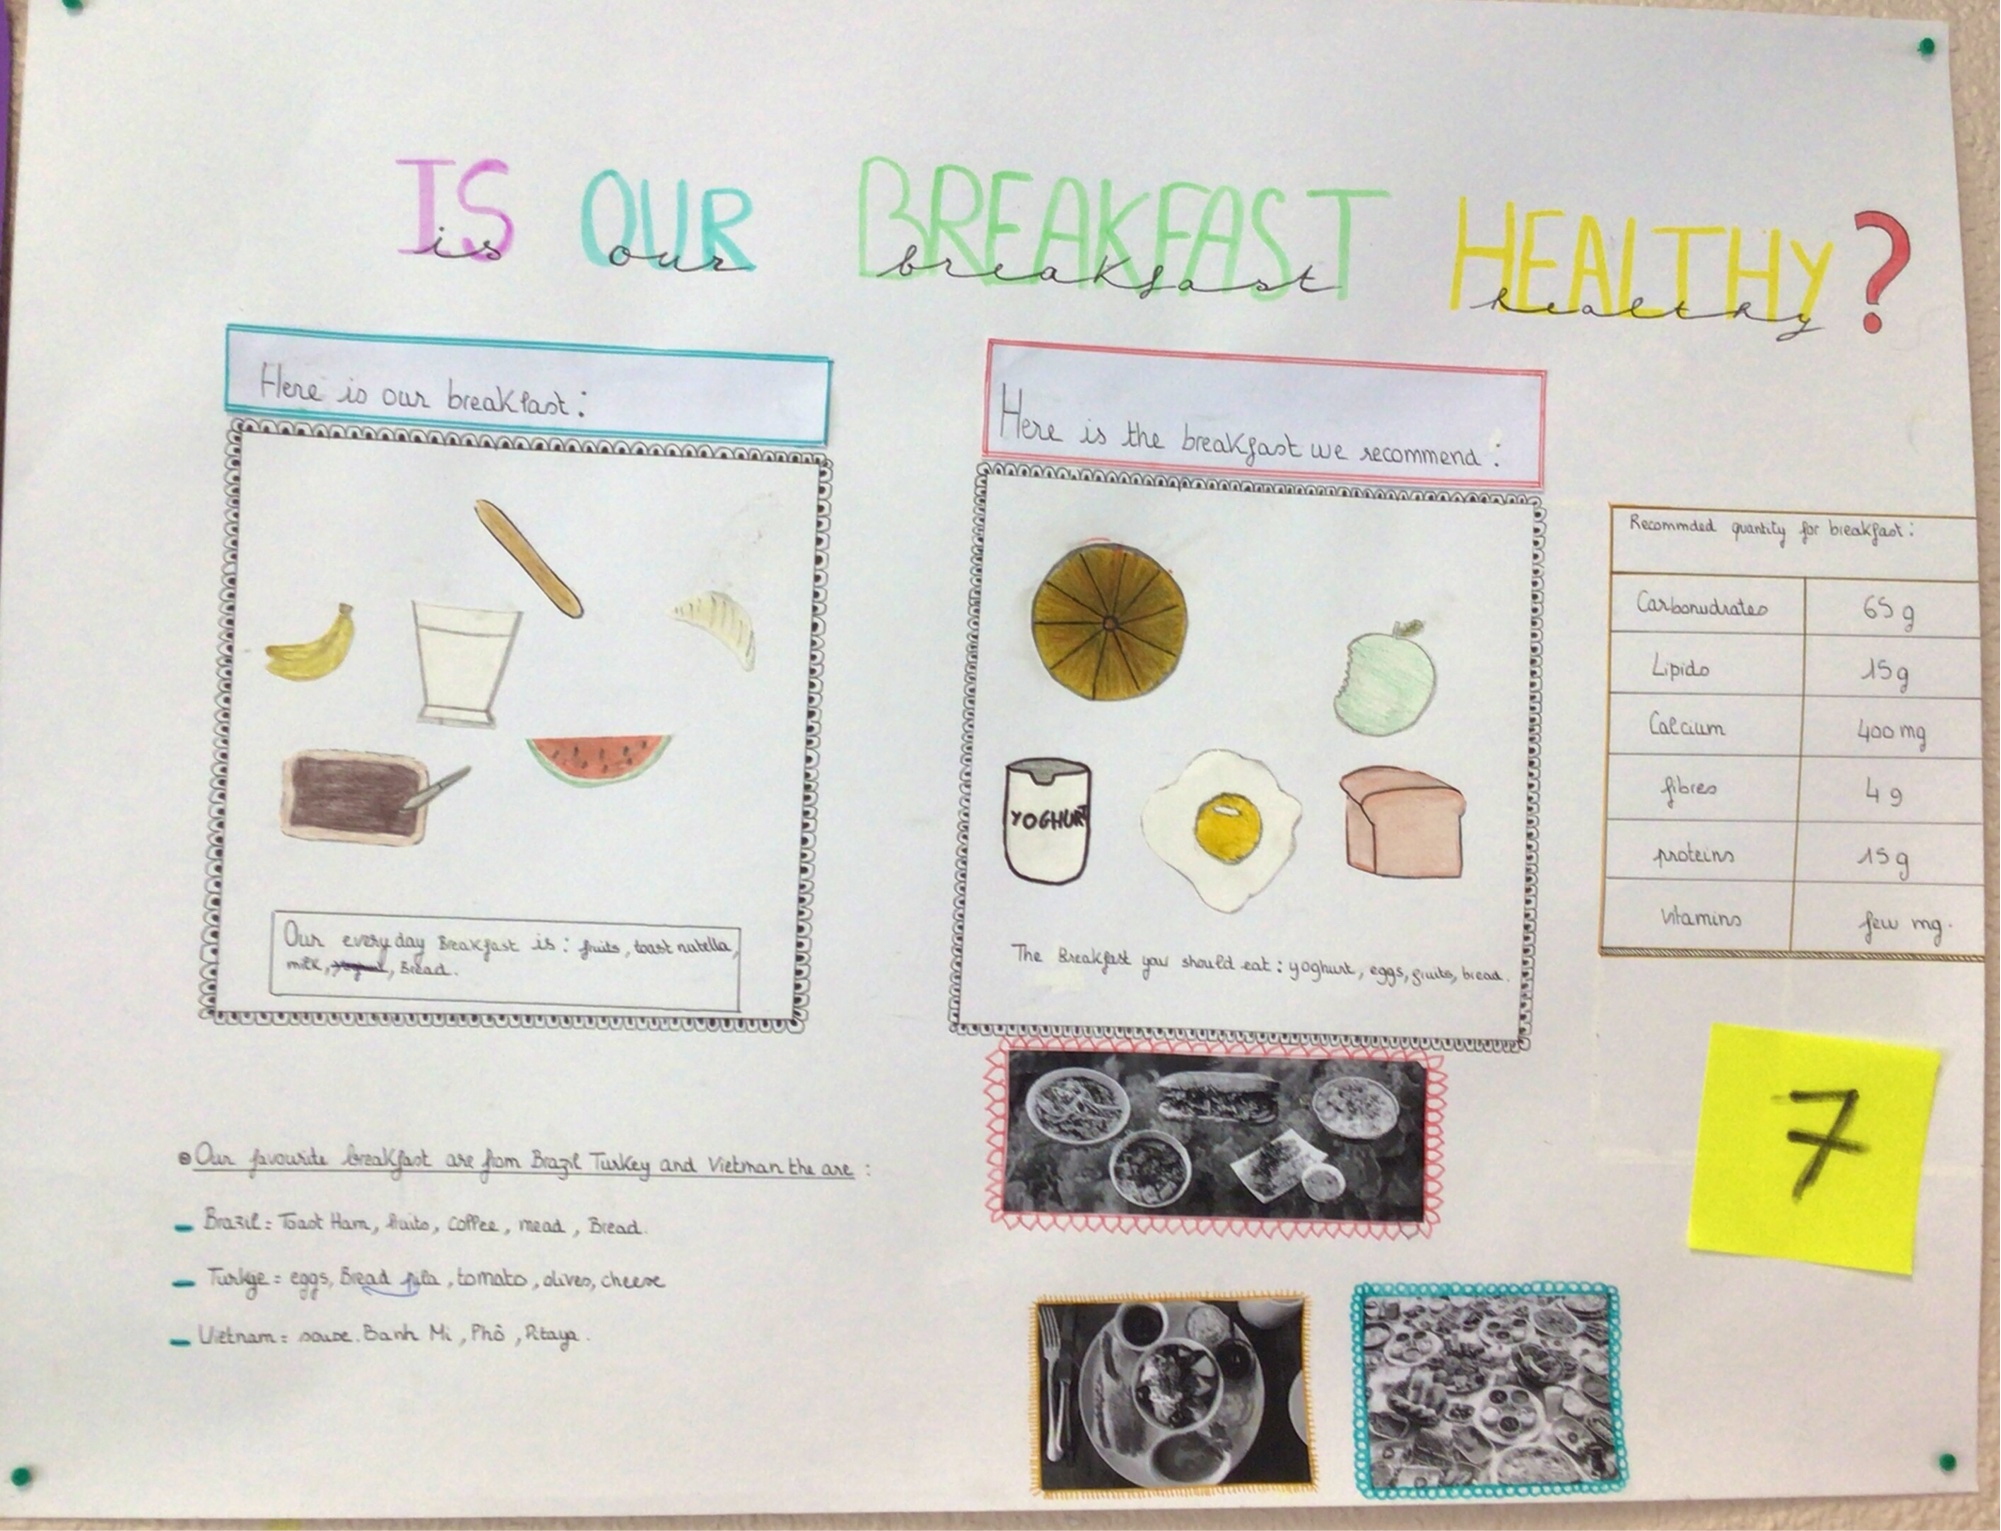 IS OUR BREAKFAST HEALTHY?
is our breakfast healthy
Here is our breakfast:
Our every day Breakfast is: fruits, toast nutella,
milk, yogurt, Bread.
Here is the breakfast we recommend:
YOGHURT
The Breakfast you should eat: yoghurt, eggs, fruits, bread.
Recommded quantity for breakfast:
Carbonudrates 65g
Lipids 15g
Calcium 400mg
fibres 4g
proteins 15g
vitamins few mg.
7
Our favourite breakfast are from Brazil Turkey and Vietman the are:
Brazil: Toast Ham, fruits, coffee, mead, Bread.
Turkye: eggs, Bread pita, tomato, olives, cheese
Vietnam: soupe. Banh Mi, Phô, Pitaya.